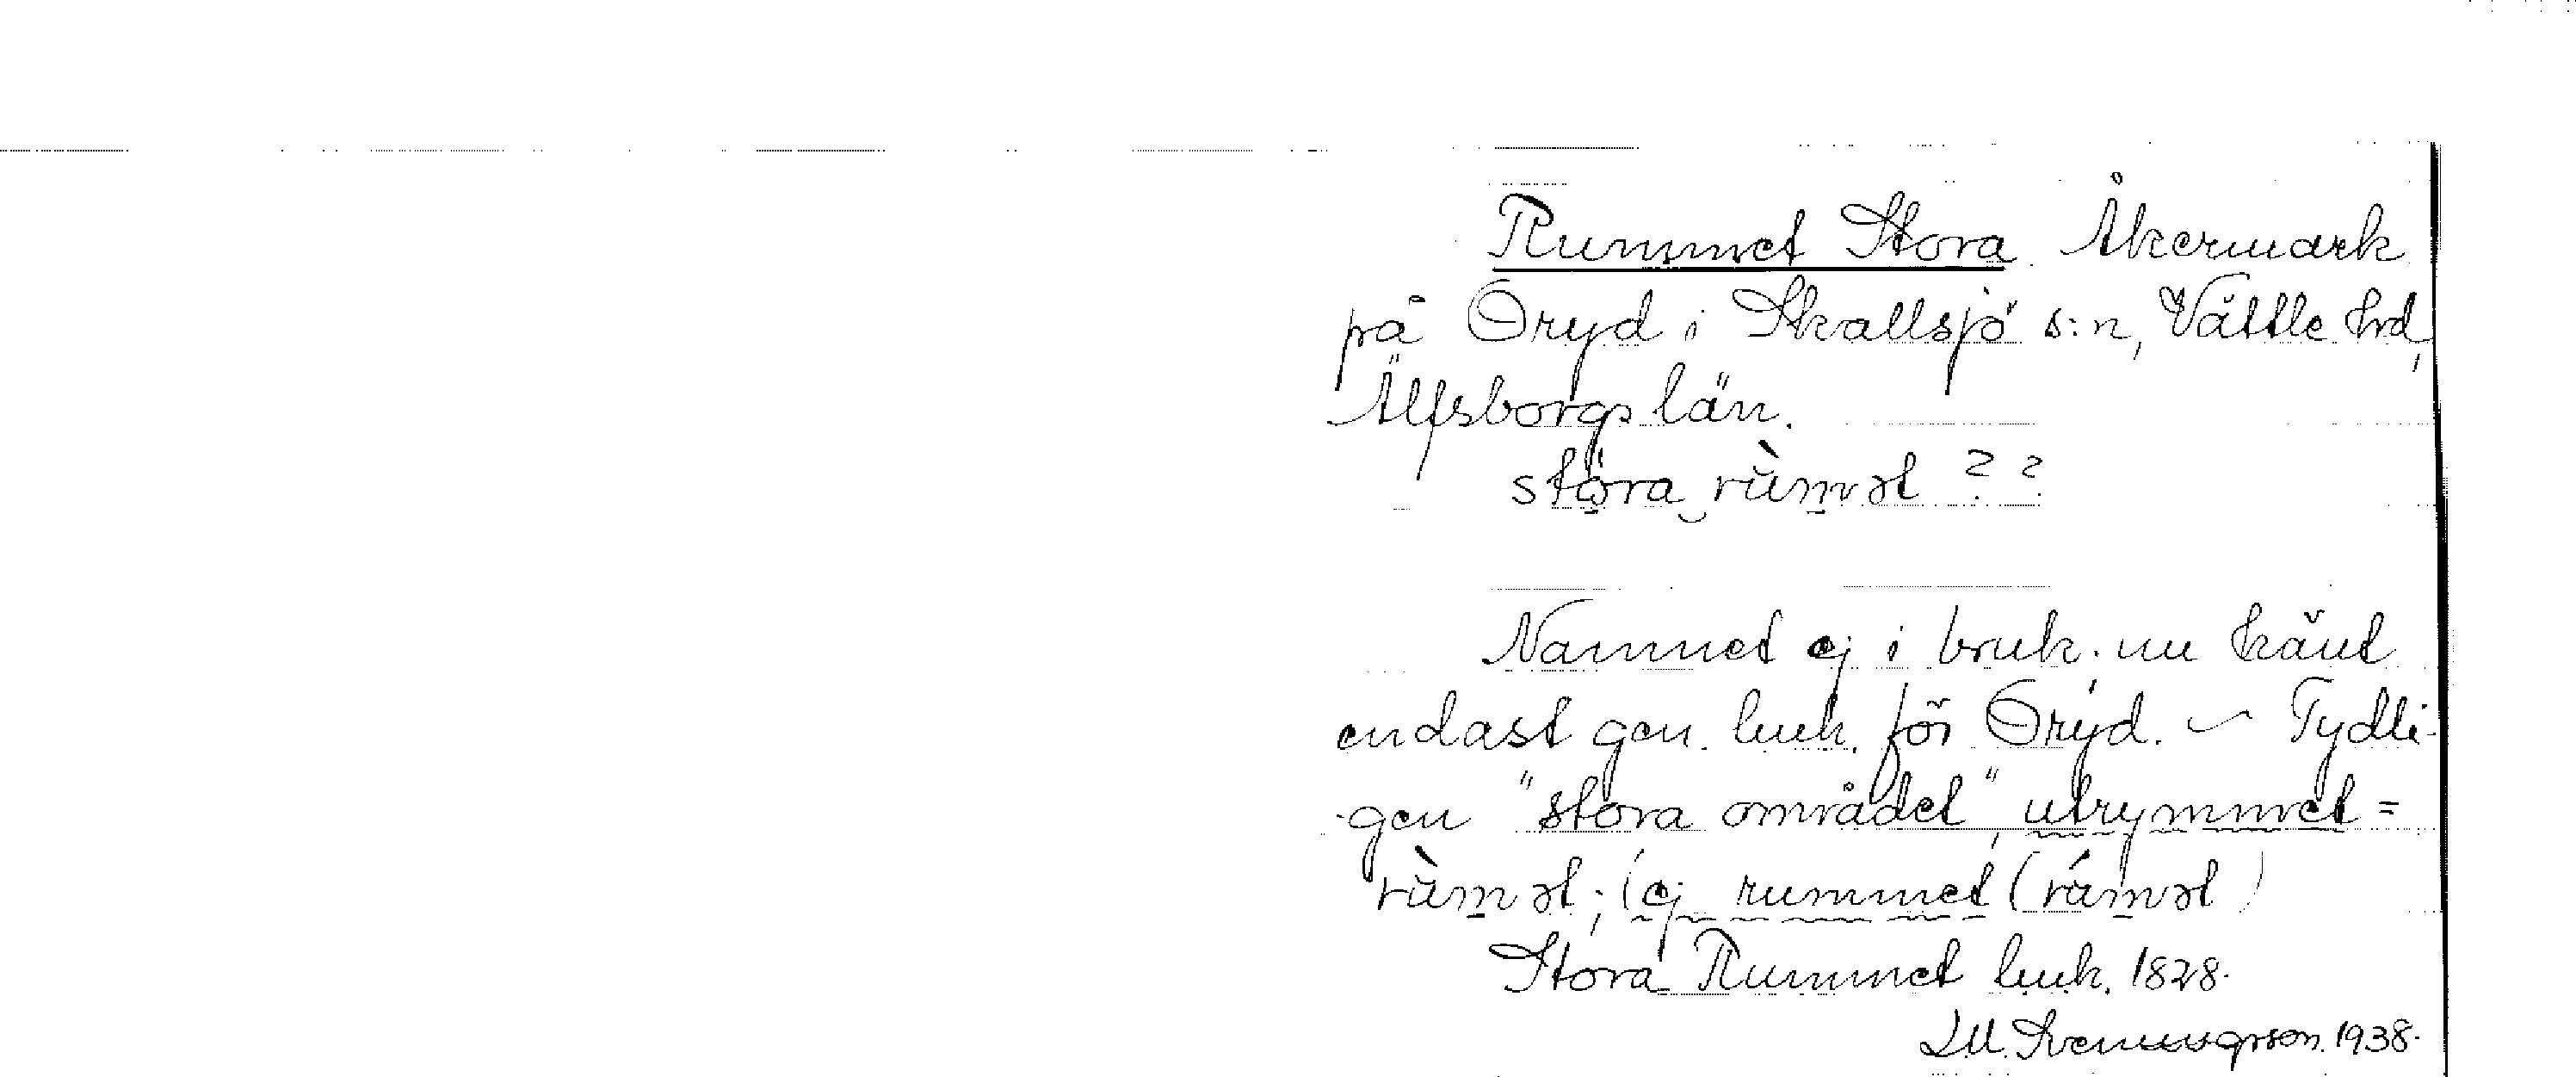 Rummet Stora Åkermark
på Öryd i Skallsjö s:n, Vättle hrd,
Älfsborgs län.
stora rùmət ? ?
Namnet ej i bruk; nu känt
endast gen. luk. för Öryd. ~ Tydli-
gen "stora området", utrymmet =
rùmət; (ej rummet (rúmət)
Stora Rummet luk. 1828.
1938.